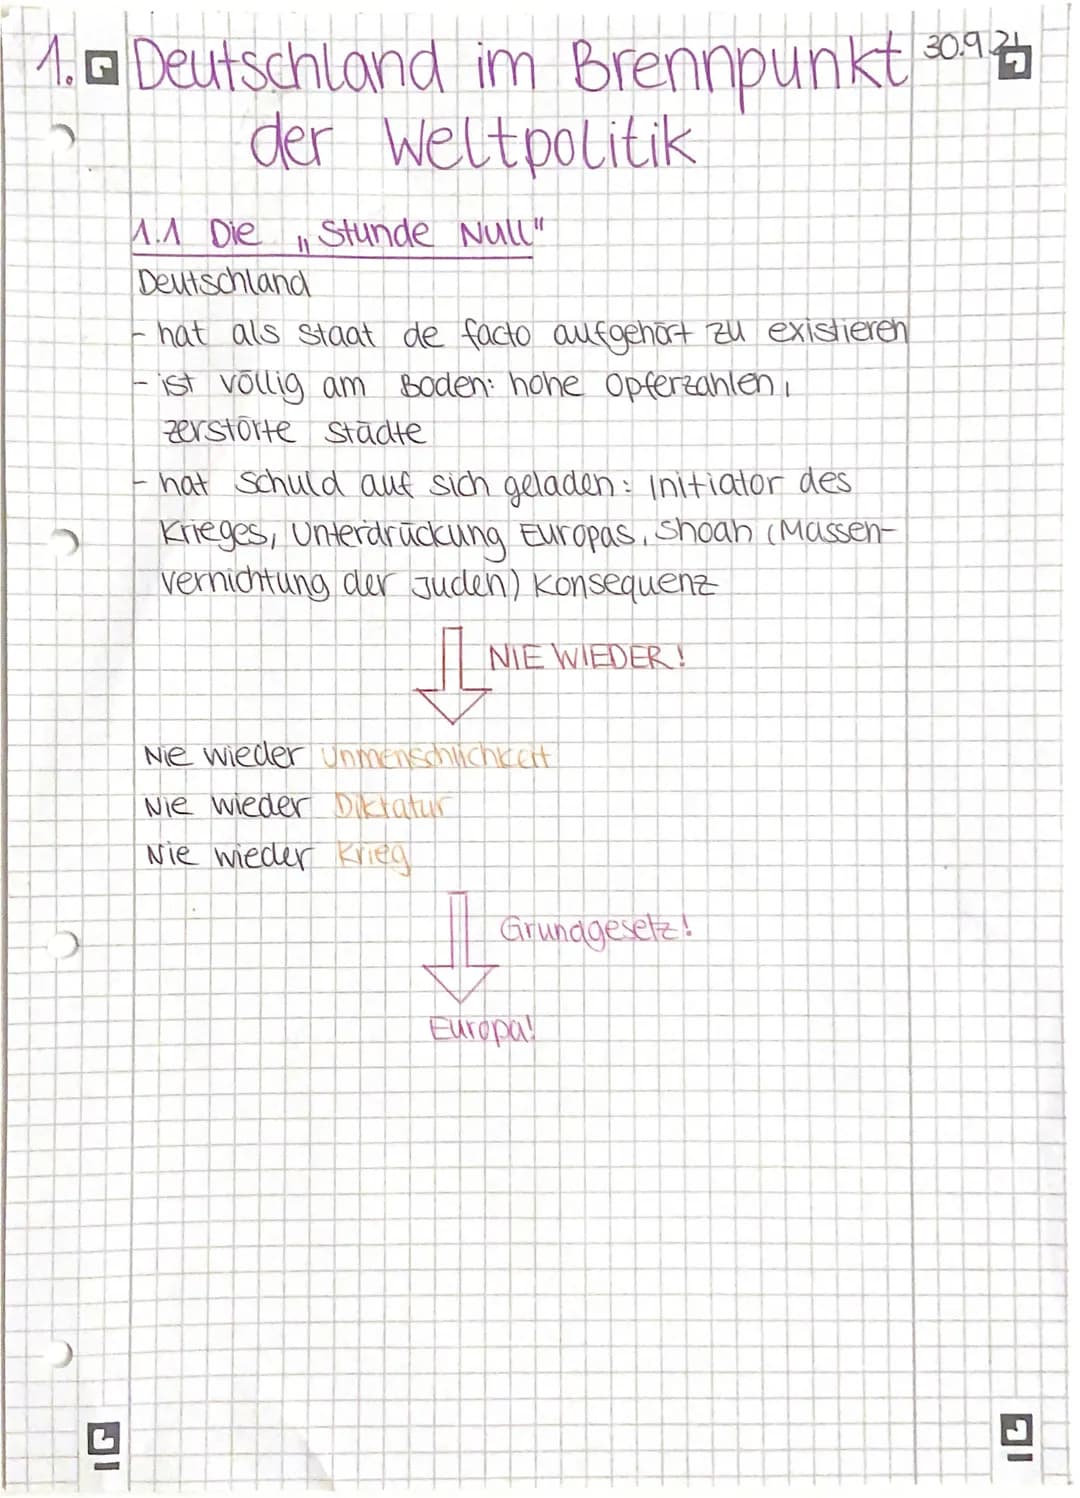 1. Deutschland im Brennpunkt 30.9.21
der Weltpolitik
1.1 Die „Stunde Null"
Deutschland
- hat als Staat de facto aufgehört zu existieren
- ist völlig am Boden: hohe Opferzahlen,
zerstörte Städte
- hat Schuld auf sich geladen: Initiator des
Krieges, Unterdrückung Europas, Shoah (Massen-
vernichtung der Juden) Konsequenz
NIE WIEDER!
Nie wieder Unmenschlichkeit
Nie wieder Diktatur
Nie wieder Krieg
Grundgesetz!
Europa!